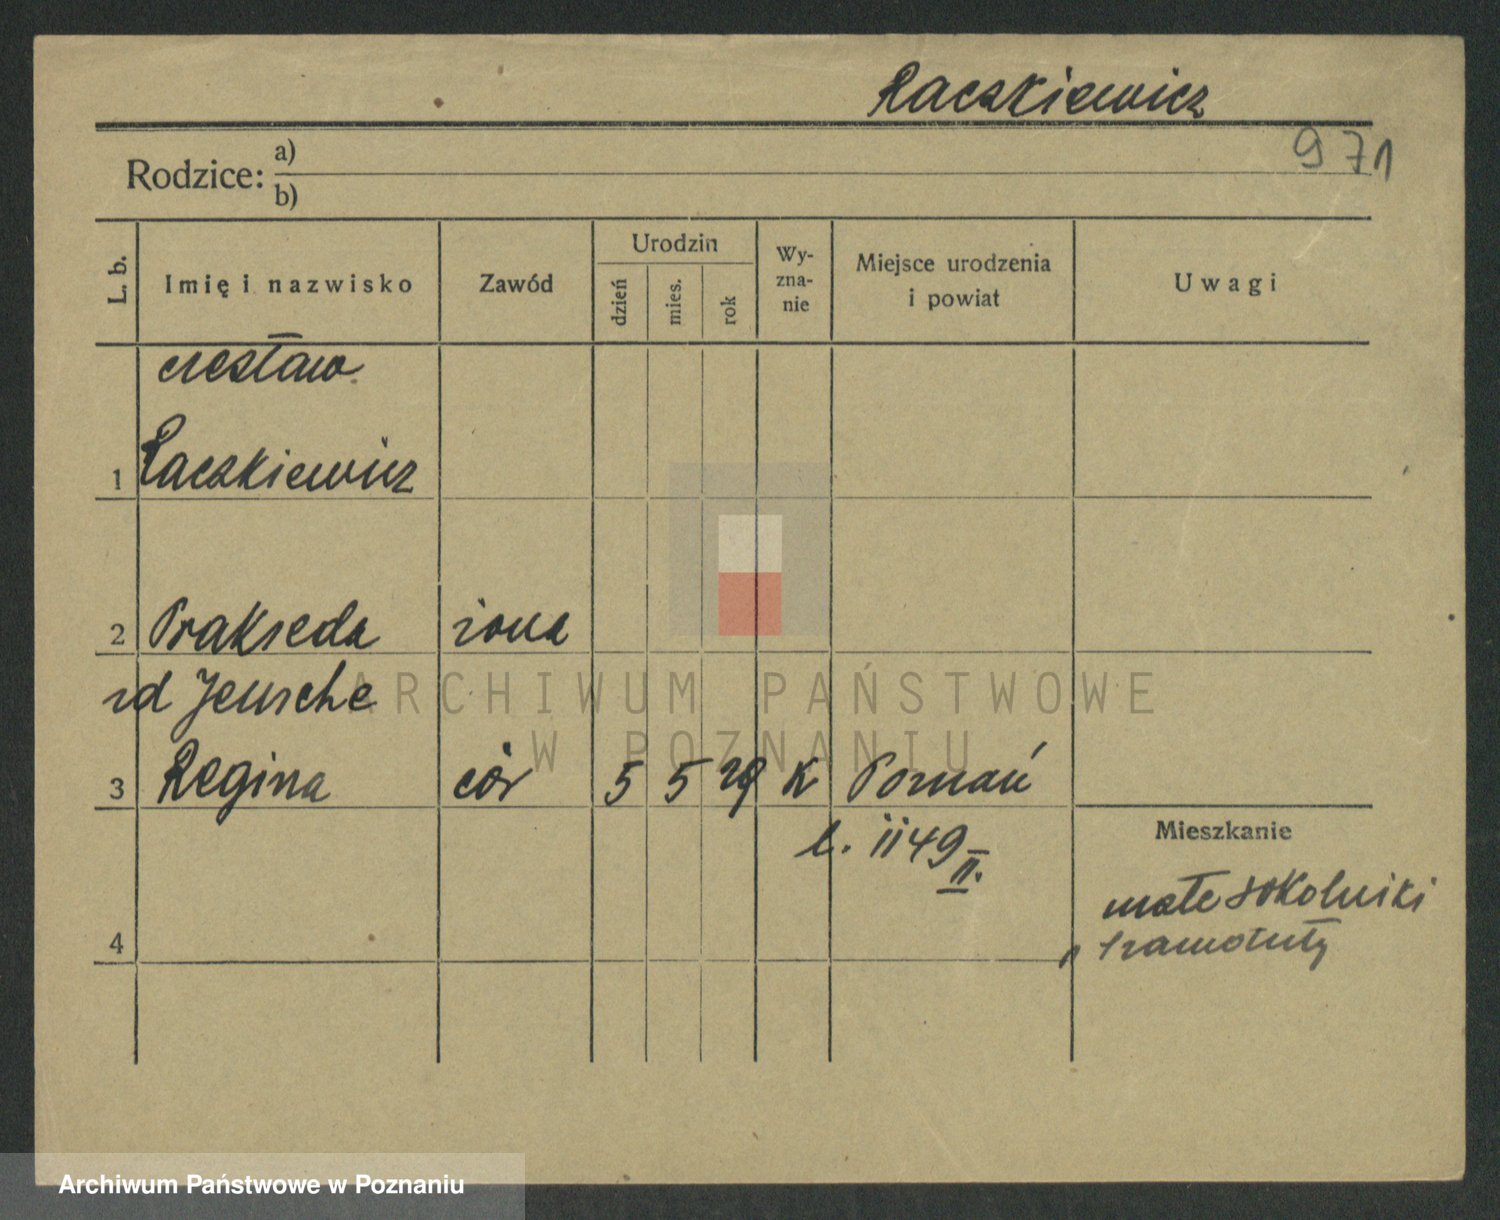 Raczkiewicz
971
Rodzice: a)
b)
L. b.
Imię i nazwisko
Zawód
Urodzin
dzień
mies.
rok
Wy-
zna-
nie
Miejsce urodzenia
i powiat
Uwagi
czesław
1 Raczkiewicz
2 Prakseda żona
zd Jeusche
3 Regina cór 5 5 29 K Poznań
l. 1149 II.
Mieszkanie
małe sokolniki
4
szamotuły
ARCHIWUM PAŃSTWOWE
W POZNANIU
Archiwum Państwowe w Poznaniu